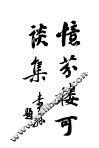 憶芬樓可
談集
李
題